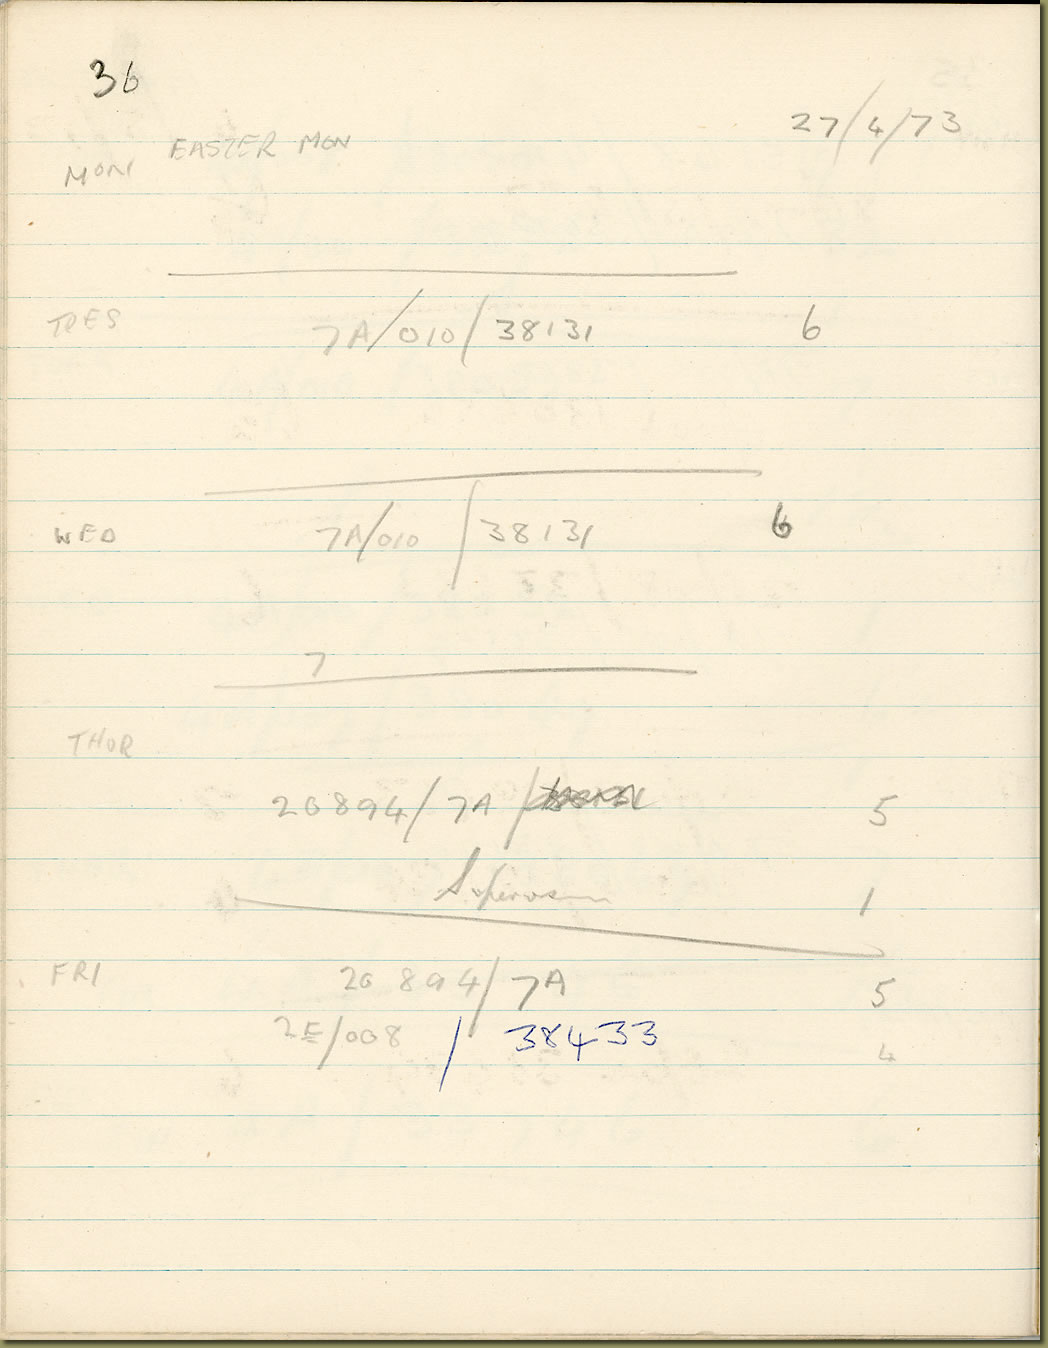 36
27/4/73
MON EASTER MON
TUES 7A/010/38131 6
WED 7A/010/38131 6
7
THUR
20894/7A/ 5
1
FRI 20894/7A 5
2E/008/38433 4